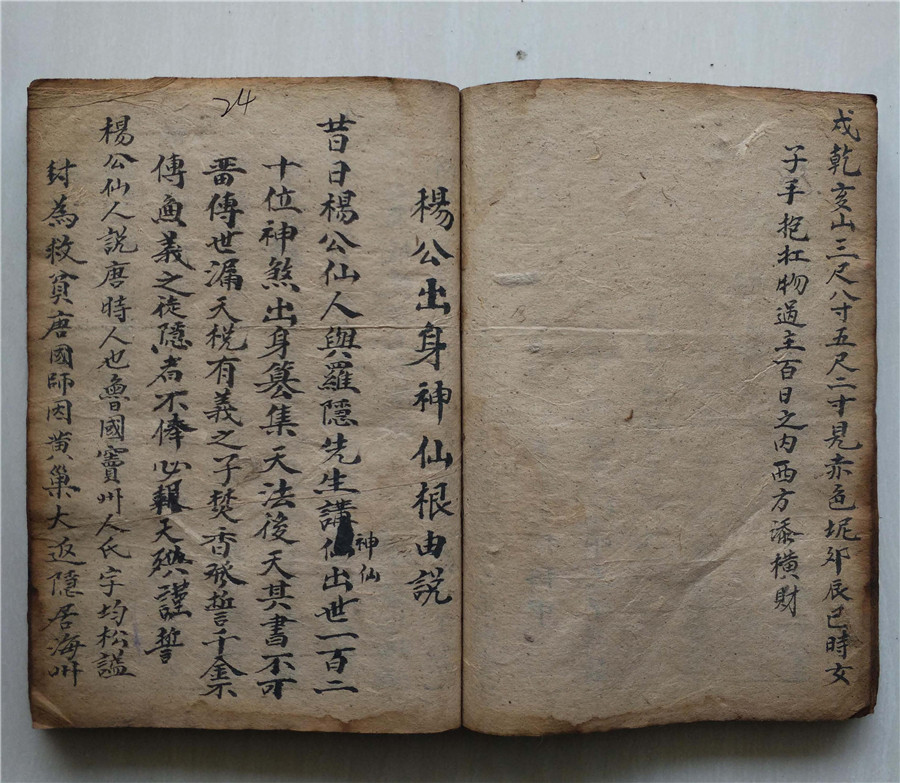 戍乾亥山三尺八寸五尺二寸見赤色坭夘辰巳時女
子手抱扛物過主百日之内西方添橫財
24
楊公出身神仙根由説
昔日楊公仙人與羅隱先生講仙出世一百二
神仙
十位神煞出身篡集天法後天其書不可
畨傳世漏天税有義之子焚香發誓千金不
傳魚義之徒隱者不俸必報天殃謹誓
楊公仙人說唐時人也魯國竇州人氏字均松謚
封為救貧唐國師因黄巢大返隱居海州